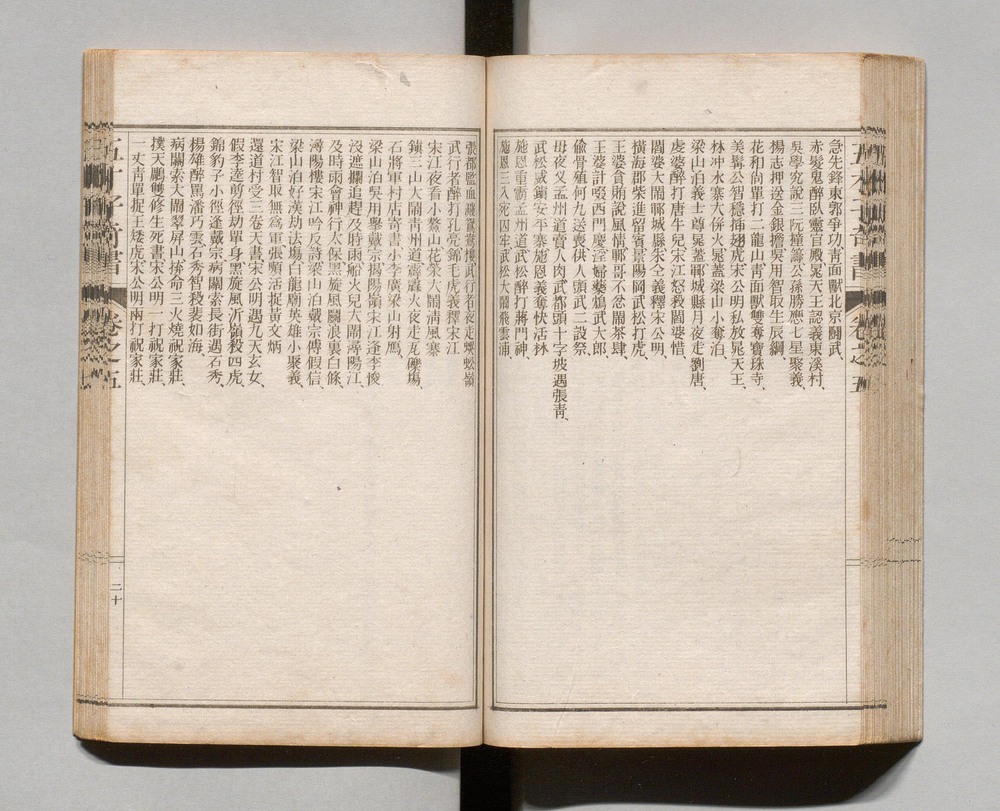 急先鋒東郭爭功靑面獸北京鬪武、
赤髮鬼醉臥靈官殿晁天王認義東溪村、
吳學究說三阮撞籌公孫勝應七星聚義、
楊志押送金銀擔吳用智取生辰綱、
花和尙單打二龍山靑面獸雙奪寶珠寺、
美髯公智穩揷翅虎宋公明私放晁天王、
林冲水寨大併火晁蓋梁山小奪泊、
梁山泊義士尊晁蓋鄆城縣月夜走劉唐、
虔婆醉打唐牛兒宋江怒殺閻婆惜、
閻婆大鬧鄆城縣朱仝義釋宋公明、
橫海郡柴進留賓景陽岡武松打虎、
王婆貪賄說風情鄆哥不忿鬧茶肆、
王婆計啜西門慶淫婦藥鴆武大郎
偸骨殖何九送喪供人頭武二設祭、
母夜叉孟州道賣人肉武都頭十字坡遇張靑、
武松威鎭安平寨施恩義奪快活林
施恩重霸孟州道武松醉打蔣門神、
施恩三入死囚牢武松大鬧飛雲浦
張都監血濺鴛鴦樓武行者夜走蜈蚣嶺
武行者醉打孔亮錦毛虎義釋宋江
宋江夜看小鰲山花榮大鬧淸風寨
鎭三山大鬧靑州道霹靂火夜走瓦礫塲、
石將軍村店寄書小李廣梁山射鴈、
梁山泊吳用舉戴宗揭陽嶺宋江逢李俊
沒遮攔追趕及時雨船火兒大鬧潯陽江、
及時雨會神行太保黑旋風鬪浪裏白條、
潯陽樓宋江吟反詩梁山泊戴宗傳假信、
梁山泊好漢劫法場白龍廟英雄小聚義、
宋江智取無爲軍張順活捉黃文炳
還道村受三卷天書宋公明遇九天玄女、
假李逵剪徑劫單身黑旋風沂嶺殺四虎、
錦豹子小徑逢戴宗病關索長街遇石秀、
楊雄醉罵潘巧雲石秀智殺裴如海、
病關索大鬧翠屛山拚命三火燒祝家莊、
撲天鵰雙修生死書宋公明一打祝家莊、
一丈靑單捉王矮虎宋公明兩打祝家莊、
五才子奇書
卷之五
二十